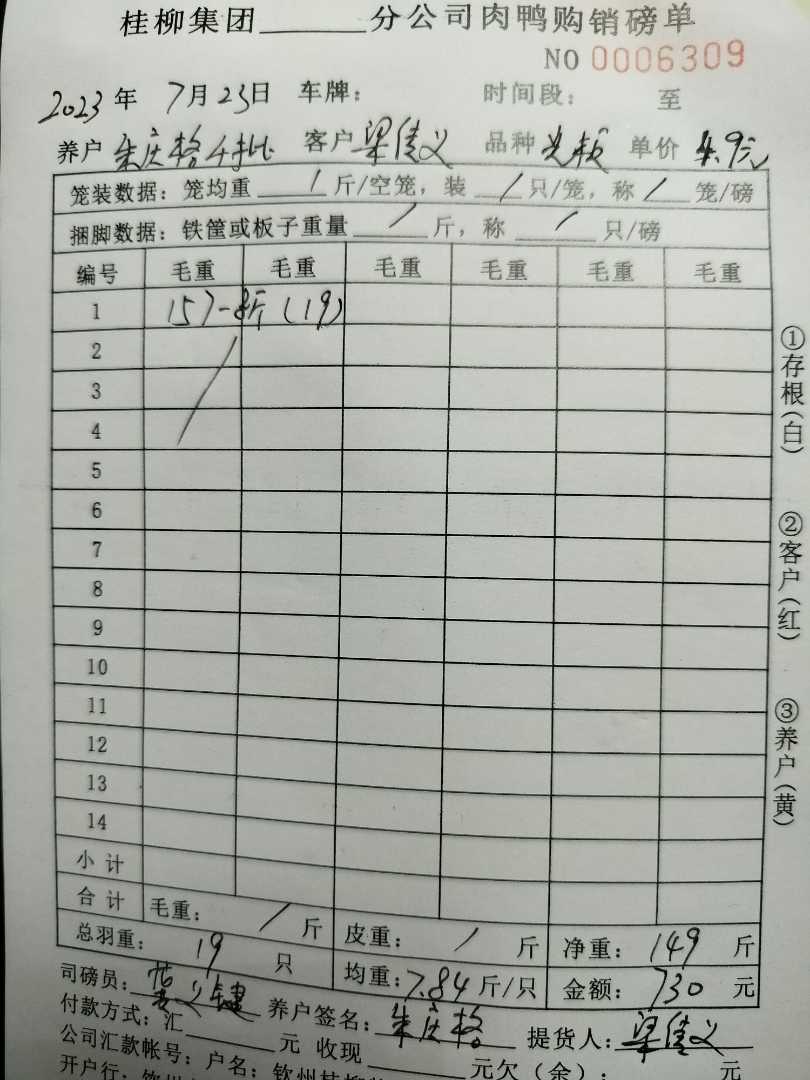 桂柳集团______分公司肉鸭购销磅单
NO 0006309
2023年 7月23日 车牌: 时间段: 至
养户 朱庆格 客户 梁 义 品种 单价 4.9元
笼装数据:笼均重 / 斤/空笼,装 / 只/笼,称 / 笼/磅
捆脚数据:铁筐或板子重量 / 斤,称 / 只/磅
编号 毛重 毛重 毛重 毛重 毛重 毛重
1 157-8斤(19)
2
3
4
5
6
7
8
9
10
11
12
13
14
小计
合计 毛重: / 斤 皮重: / 斤 净重: 149 斤
总羽重: 19 只 均重: 7.84 斤/只 金额: 730 元
司磅员: 养户签名: 朱庆格 提货人: 梁 义
付款方式:汇______元 收现______元欠(余): 元
公司汇款帐号:户名:钦州桂柳
开户行:钦州
①存根(白)
②客户(红)
③养户(黄)